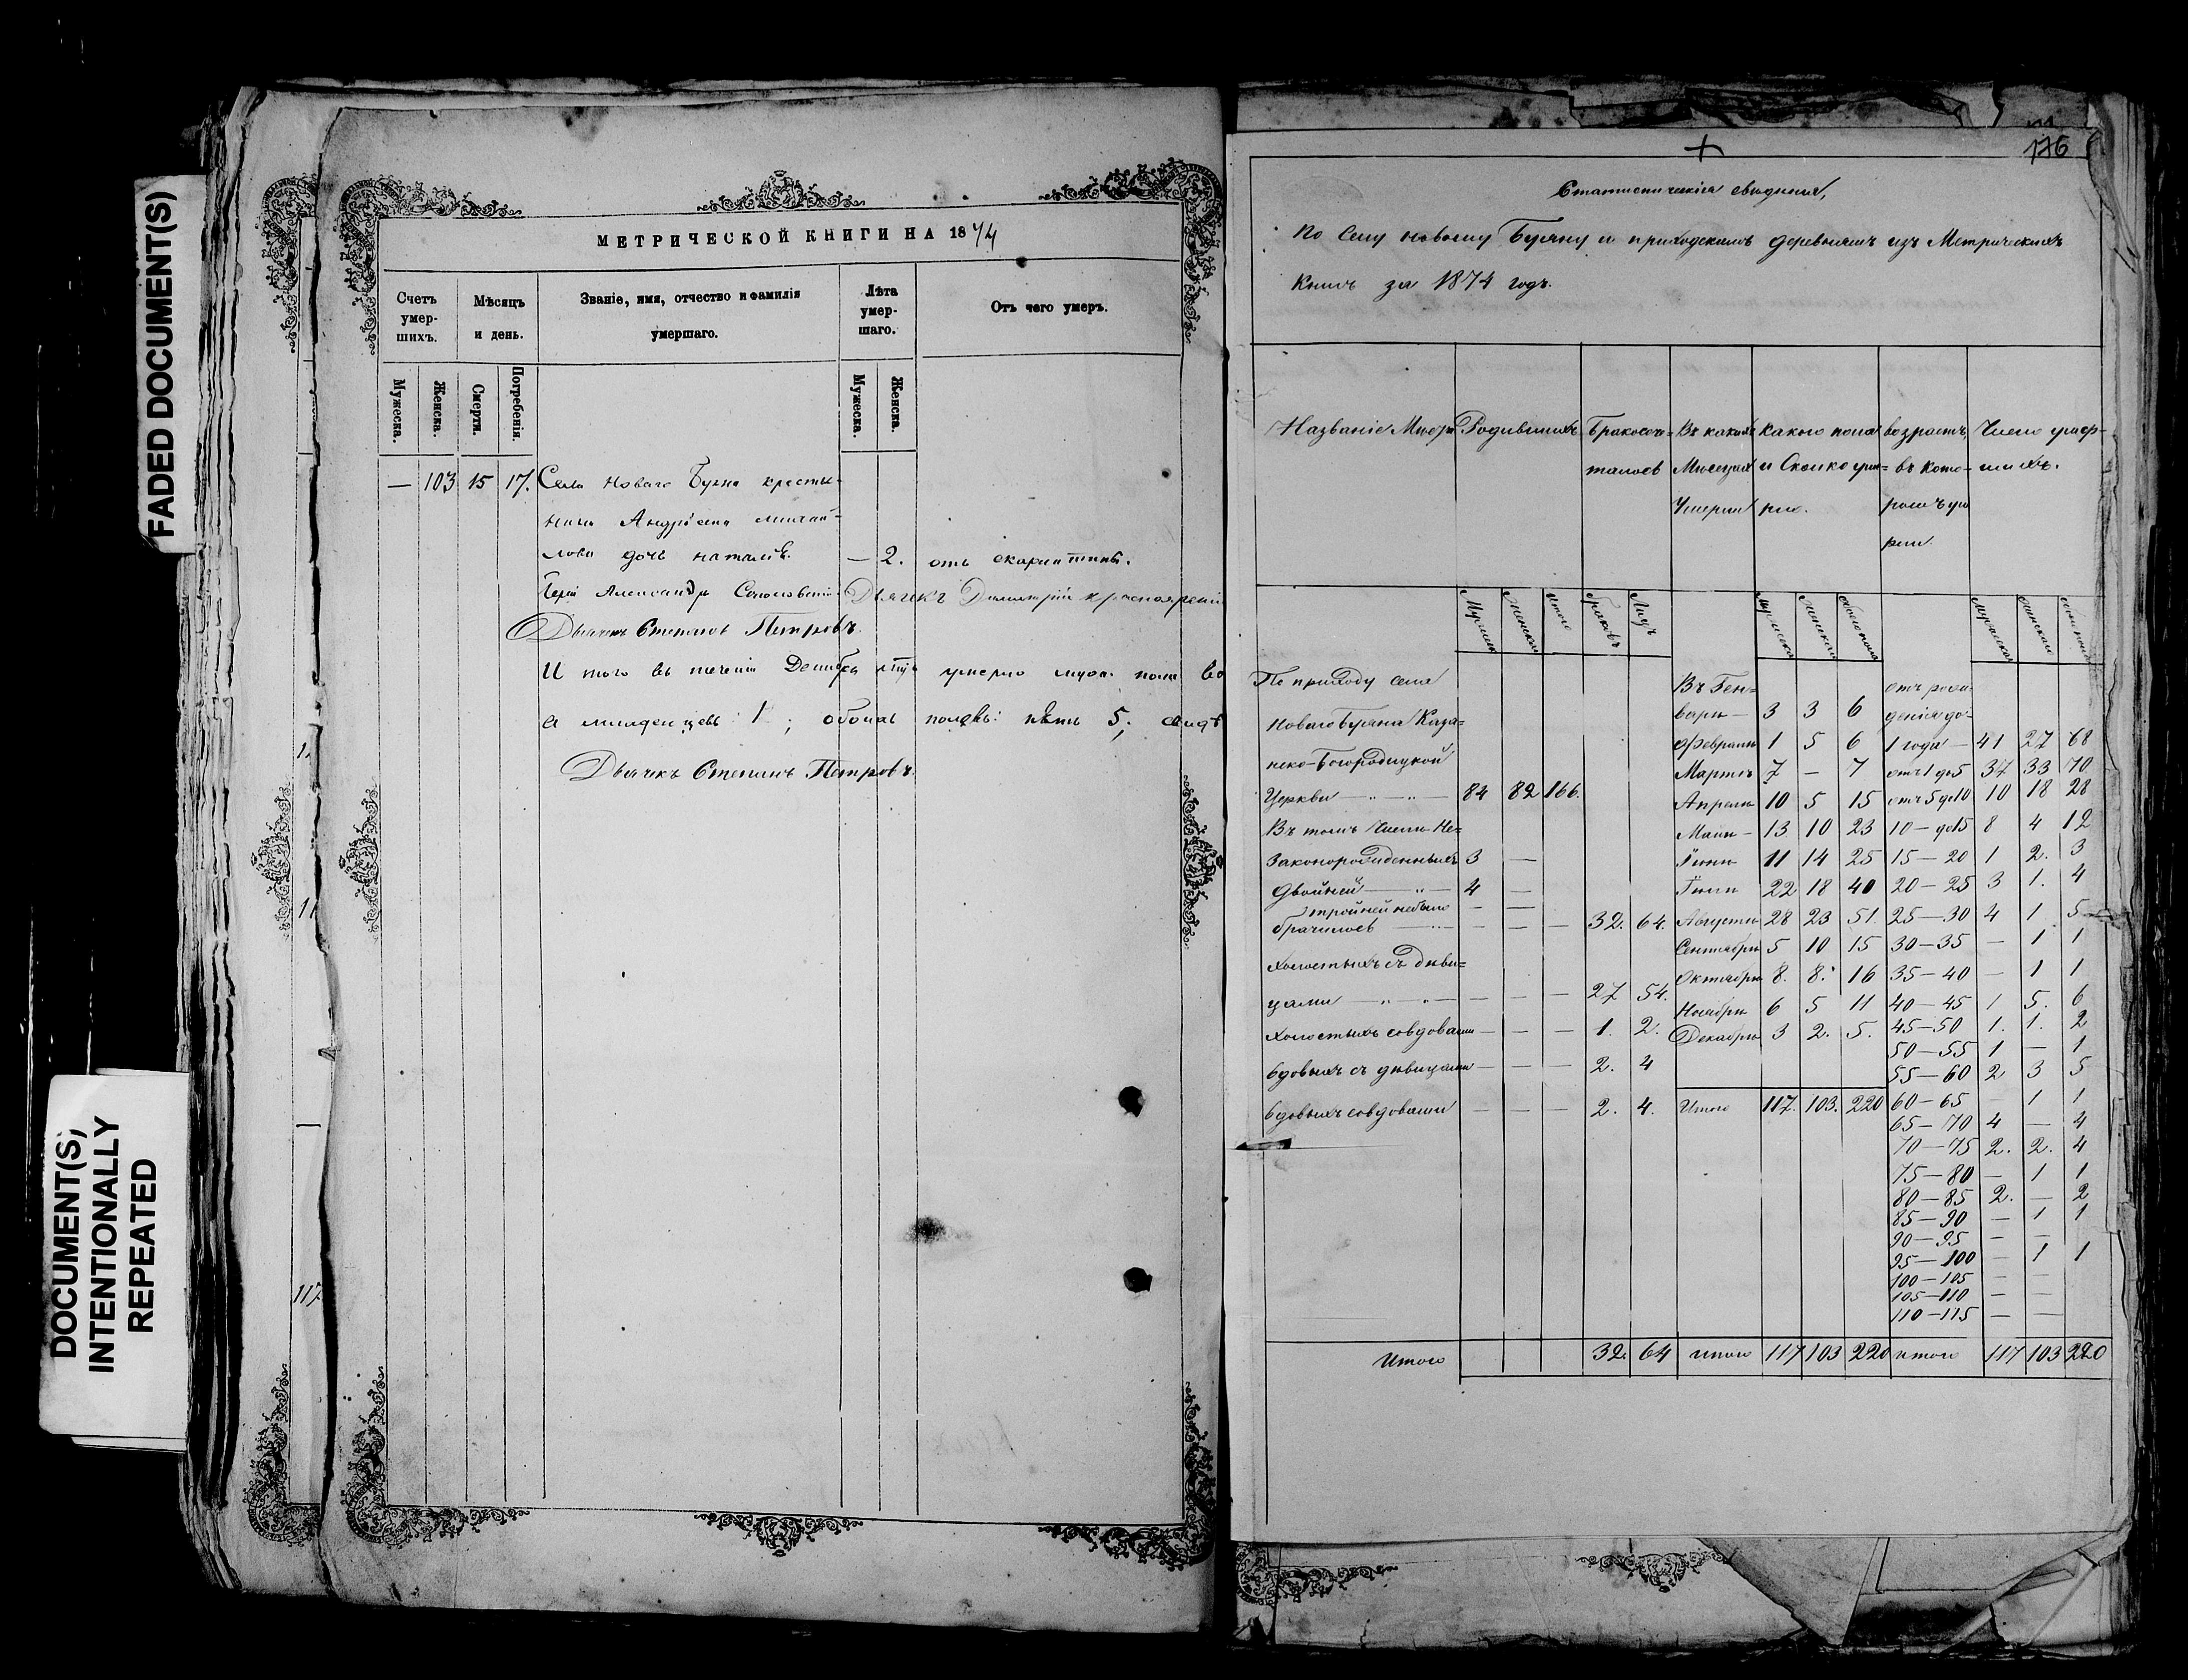 FADED DOCUMENT(S)
DOCUMENT(S)
INTENTIONALLY
REPEATED
1.
11
117
МЕТРИЧЕСКОЙ КНИГИ НА 1874
Счетъ умер-шихъ.
Мѣсяцъ и день.
Званіе, имя, отчество и фамилія умершаго.
Лѣта умер-шаго.
Отъ чего умеръ.
Мужеска. Женска. Смерти. Погребенія. Мужеска. Женска.
— 103 15 17. Села Новаго Буяна крестья-
нина Андріяна Михай-
лова дочь Наталія. — 2. отъ скарлатины.
Іерей Александръ Дьячекъ Димитрій
Дьячекъ Степанъ Петровъ.
И того въ теченіи Декабря умерло муж. пола
а младенцевъ 1; обоихъ половъ: пять 5;
Дьячекъ Степанъ Петровъ.
176
Статистическія свѣдѣнія,
По Селу Новому Буяну и приходскимъ деревнямъ изъ Метрическихъ
Книгъ за 1874 годъ.
Названіе Родившихъ Бракосоче- Въ какихъ Какого пола возрастъ, Число умер-
талось Мѣсяцахъ и Сколко уме- въ кото- шихъ.
Умерли рло. ромъ уме
рли.
Мужеска Женска Итого Браковъ Лицъ Мужеска Женска Обоего пола Мужеска Женска Обоего пола
По приходу села Въ Ген- отъ рож-
Новаго Буяна Каза- варѣ — 3 3 6 денія до
нско-Богородицкой Февралѣ 1 5 6 1 года — 41 27 68
Мартѣ 7 — 7 отъ 1 до 5 37 33 70
Церкви — „ — „ — 84 82 166. Апрелѣ 10 5 15 отъ 5 до 10 10 18 28
Въ томъ Числѣ Не- Маіи — 13 10 23 10 — до 15 8 4 12
Законорожденныхъ 3 — Іюнѣ 11 14 25 15 — 20 1 2. 3
Двойней — „ — 4 — Іюлѣ 22 18 40 20 — 25 3 1. 4
тройней небыло — —
брачилось — „ — — — — 32. 64. Августѣ 28 23 51. 25 — 30 4 1 5
Сентябрѣ 5 10 15 30 — 35 — 1 1
Холостыхъ съ дѣви- Октябрѣ 8. 8. 16 35 — 40 — 1 1
цами — „ — „ — — — — 27 54. Ноябрѣ 6 5 11 40 — 45 1 5. 6
Холостыхъ совдовами — — — 1. 2. Декабрѣ 3 2. 5. 45 — 50 1. 1. 2
50 — 55 1 — 1
Вдовыхъ съ дѣвицами — — — 2. 4 55 — 60 2 3 5
Вдовыхъ совдовами — — — 2. 4. Итого 117. 103. 220 60 — 65 — 1 1
65 — 70 4 — 4
70 — 75 2. 2. 4
75 — 80 — 1 1
80 — 85 2. — 2
85 — 90 — 1 1
90 — 95 — —
95 — 100 — 1 1
100 — 105 — —
105 — 110 — —
110 — 115 — —
Итого 32. 64 итого 117 103 220 итого 117 103 220